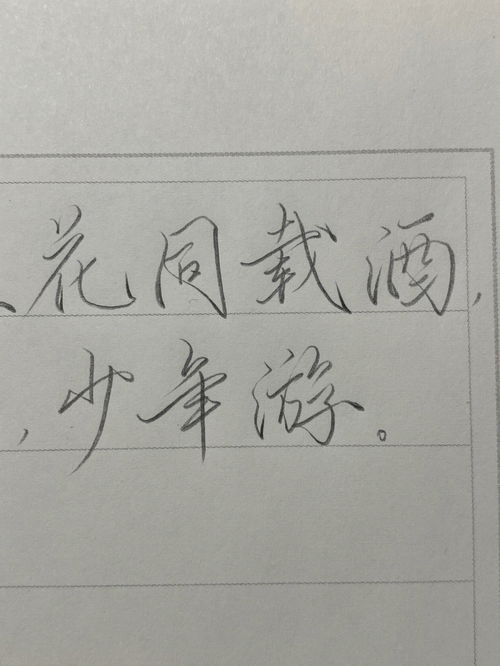 花同载酒,
,少年游。